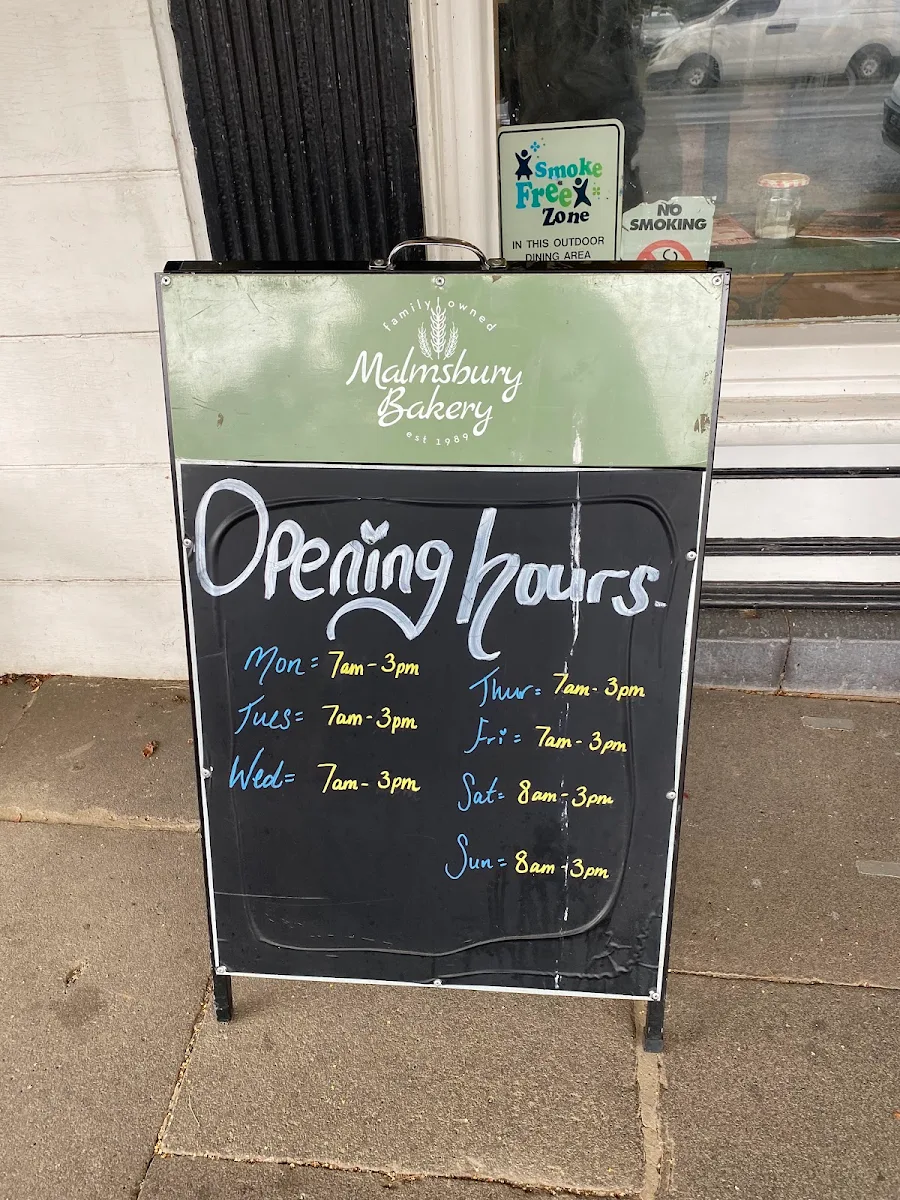 Smoke
Free
Zone
IN THIS OUTDOOR
DINING AREA
NO
SMOKING
family owned
Malmsbury
Bakery
est 1989
Opening hours.
Mon = 7am - 3pm
Tues = 7am - 3pm
Wed = 7am - 3pm
Thur = 7am - 3pm
Fri = 7am - 3pm
Sat = 8am - 3pm
Sun = 8am - 3pm